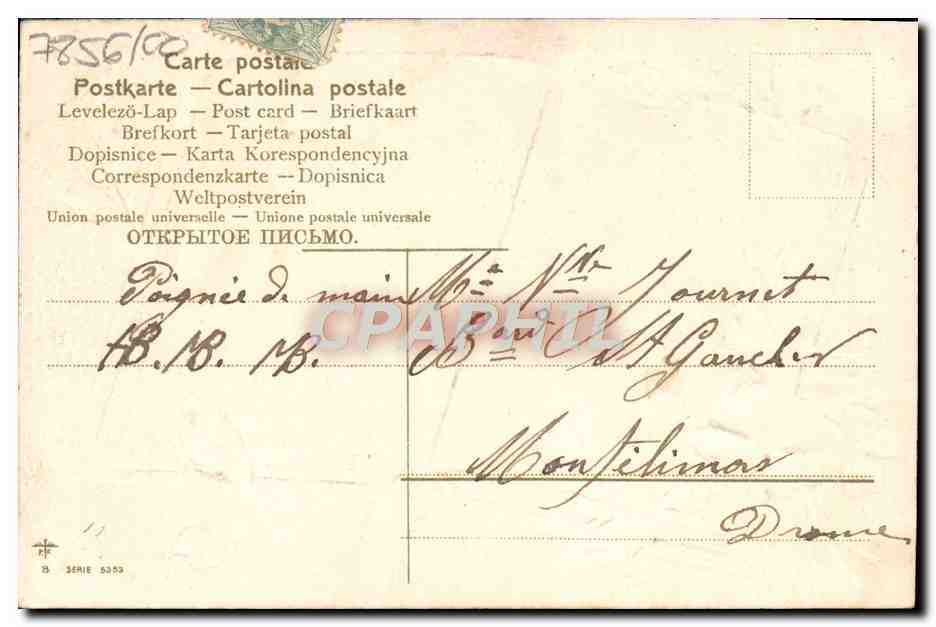 7856/00
Carte postale
Postkarte — Cartolina postale
Levelező-Lap — Post card — Briefkaart
Brefkort — Tarjeta postal
Dopisnice — Karta Korespondencyjna
Correspondenzkarte — Dopisnica
Weltpostverein
Union postale universelle — Unione postale universale
ОТКРЫТОЕ ПИСЬМО.
Poignée de main
B. B. B.
Journet
Bard St Gaucher
Montélimar
Drome
CPAPHIL
8 SERIE 5353